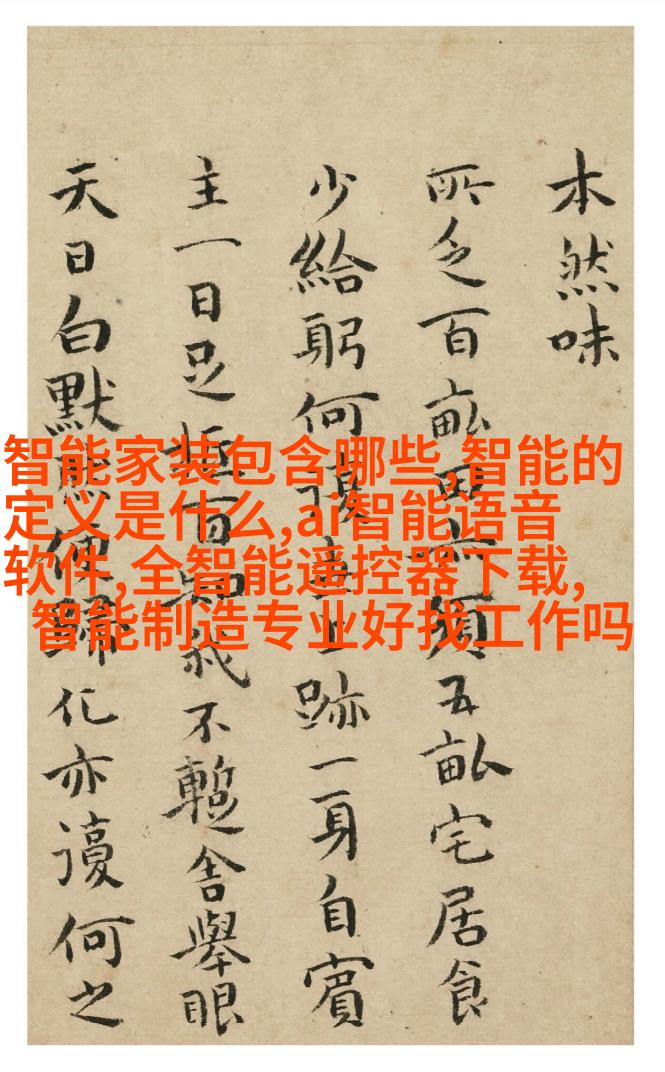 本然味
所乏百畝田須五畝宅居食
少給躬何上跡一身自賓
主一日足百我不暫舍舉眼
天日白默然便歸化亦復何之
智能家装包含哪些,智能的
定义是什么,ai智能语音
软件,全智能遥控器下载,
智能制造专业好找工作吗